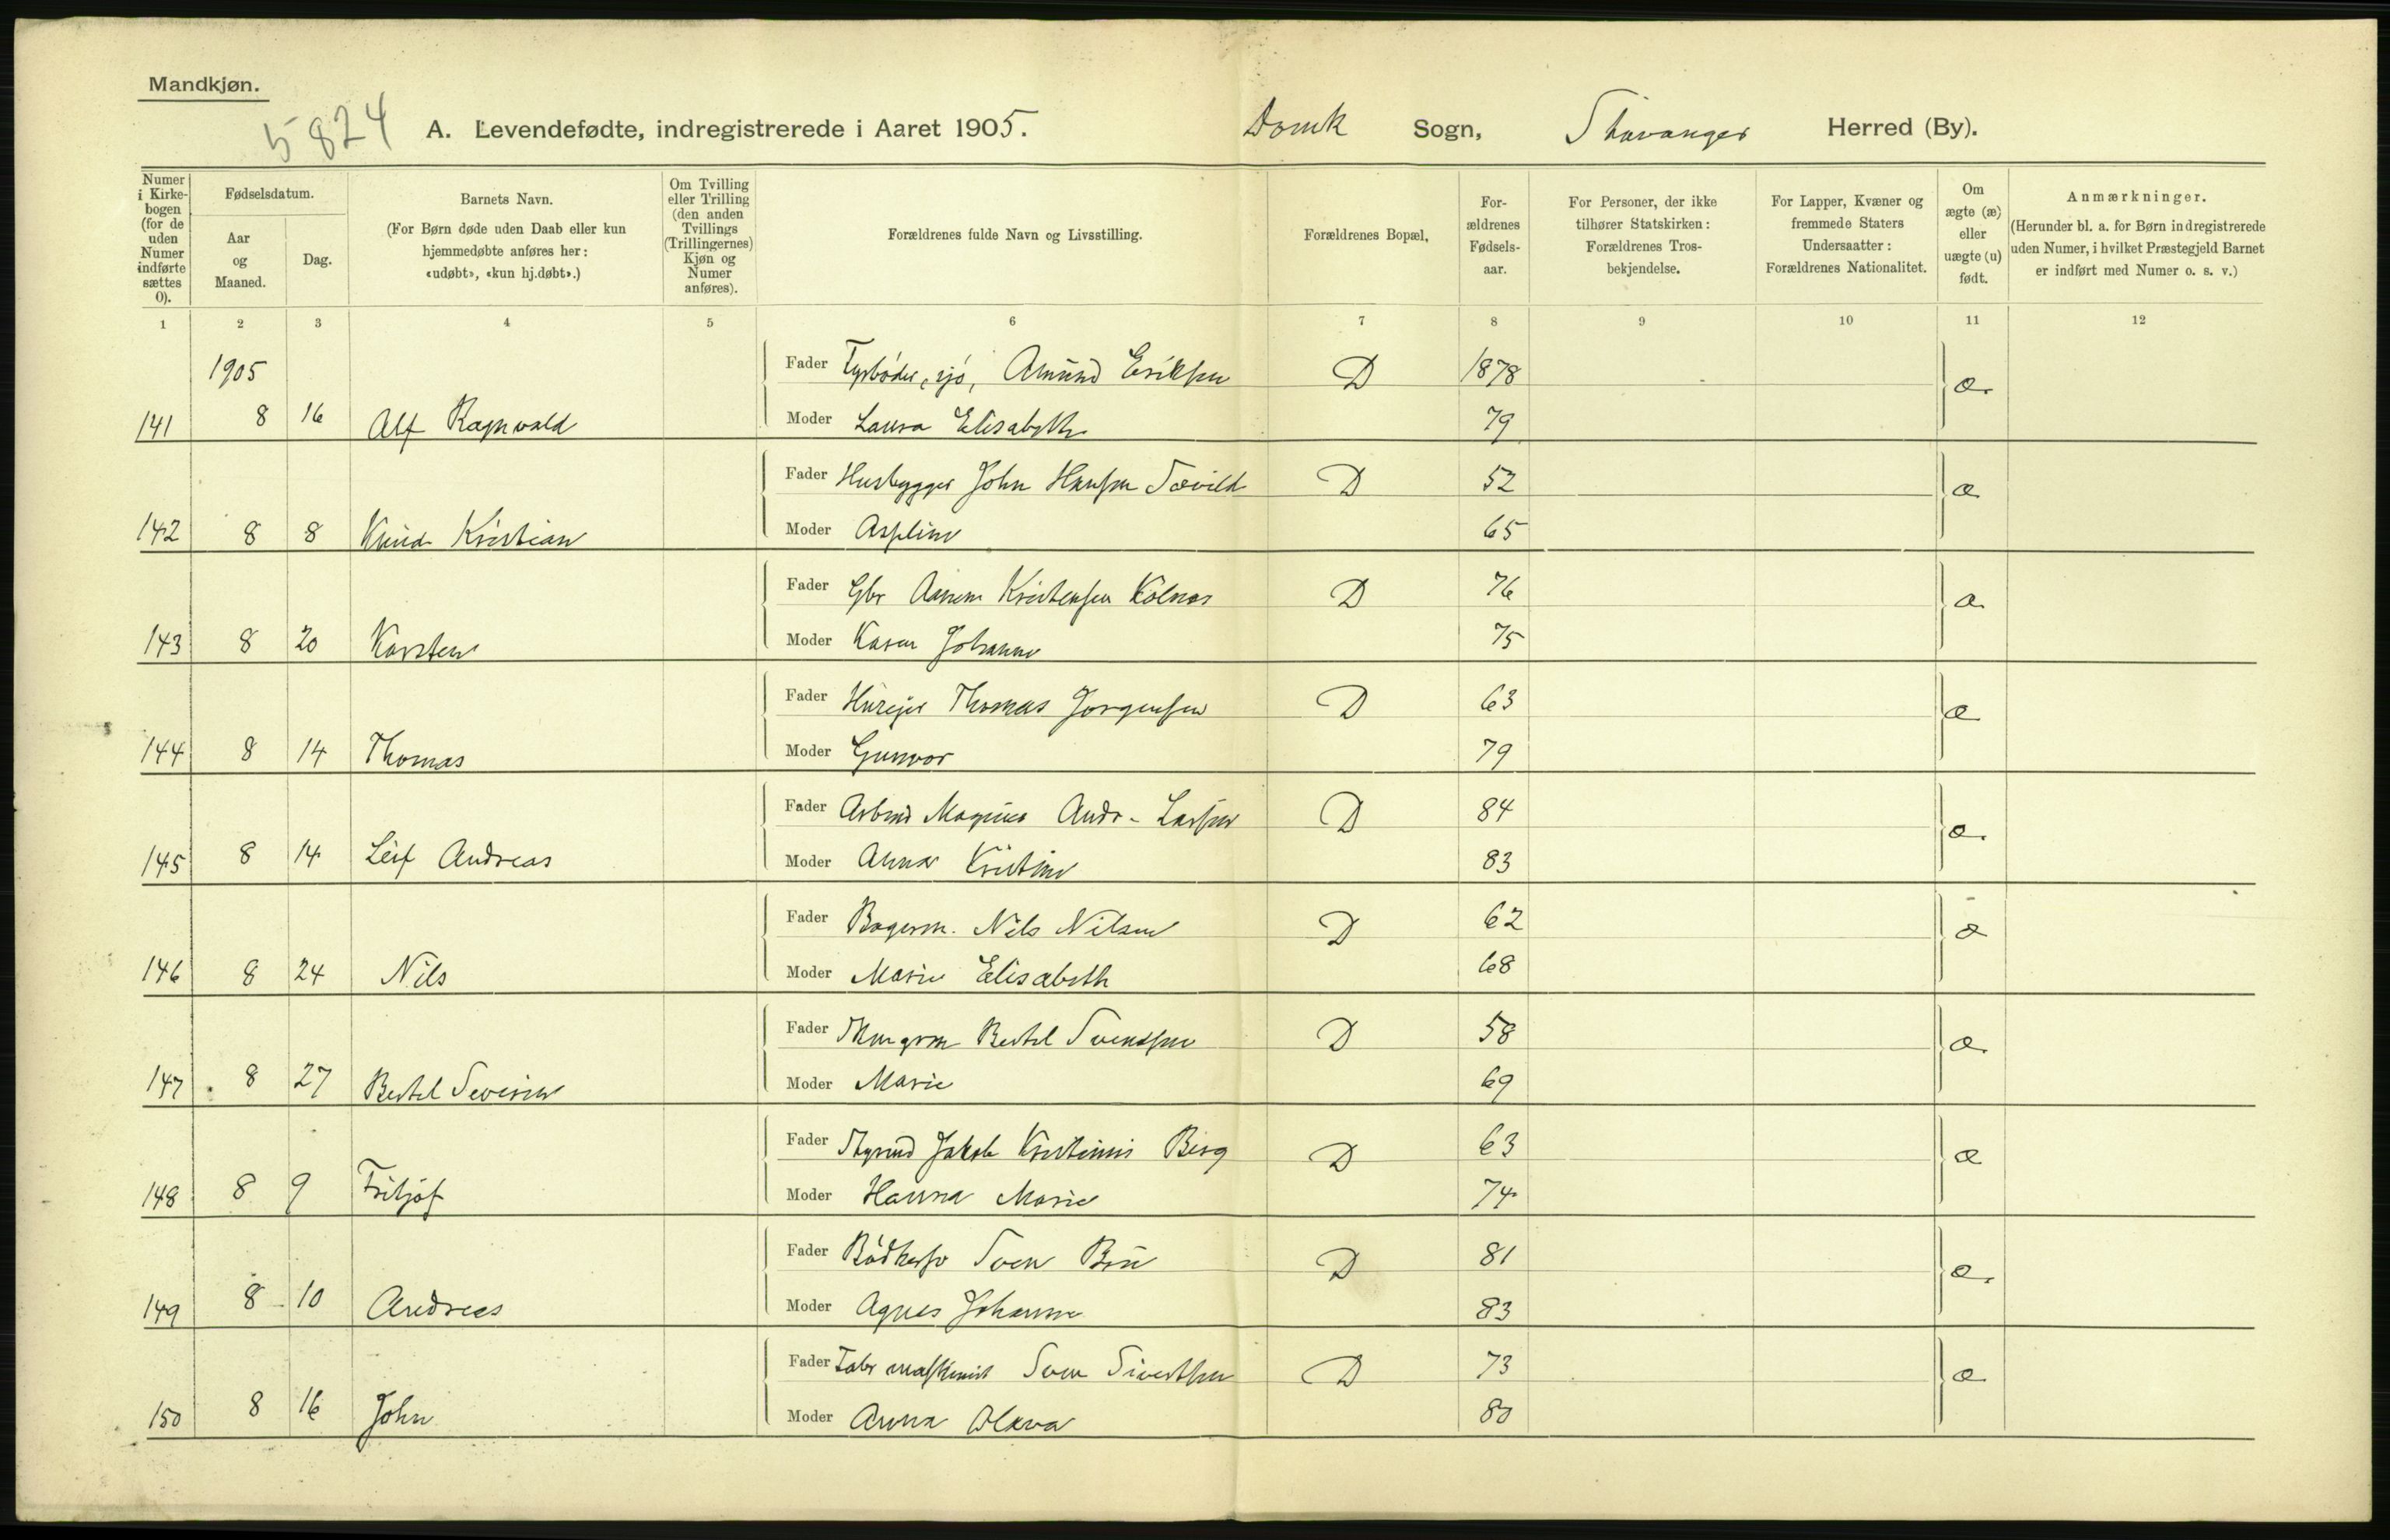 Mandkjøn.
5824
A. Levendefødte, indregistrerede i Aaret 1905.
Domk Sogn, Stavanger Herred (By).
Numer i Kirke-bogen (for de uden Numer indførte sættes 0).
Fødselsdatum.
Aar og Maaned.
Dag.
Barnets Navn.
(For Børn døde uden Daab eller kun hjemmedøbte anføres her: «udøbt», «kun hj.døbt».)
Om Tvilling eller Trilling (den anden Tvillings (Trillingernes) Kjøn og Numer anføres).
Forældrenes fulde Navn og Livsstilling.
Forældrenes Bopæl,
For-ældrenes Fødsels-aar.
For Personer, der ikke tilhører Statskirken: Forældrenes Tros-bekjendelse.
For Lapper, Kvæner og fremmede Staters Undersaatter: Forældrenes Nationalitet.
Om ægte (æ) eller uægte (u) født.
Anmærkninger.
(Herunder bl. a. for Børn indregistrerede uden Numer, i hvilket Præstegjeld Barnet er indført med Numer o. s. v.)
1 2 3 4 5 6 7 8 9 10 11 12
1905
Fader Fyrbøder, sjö, Amund Eriksen D 1878 æ
141 8 16 Alf Ragnvald Moder Laura Elisabeth 79
Fader Husbygger John Hansen D 52 æ
142 8 8 Knud Kristian Moder Aspline 65
Fader Gbr Kristensen Kolnes D 76 æ
143 8 20 Karsten Moder Karen Johanne 75
Fader Husejer Thomas Jørgensen D 63 æ
144 8 14 Thomas Moder Gunvor 79
Fader Arbmd Magnus Andr. Larsen D 84 æ
145 8 14 Leif Andreas Moder Anna Kristine 83
Fader Bagerm. Nils Nilsen D 62 æ
146 8 24 Nils Moder Marie Elisabeth 68
Fader Bertel Svendsen D 58 æ
147 8 27 Bertel Severin Moder Marie 69
Fader Jakob Kristinius Berg D 63 æ
148 8 9 Fritjof Moder Hanna Marie 74
Fader Bødkersv Sven Bru D 81 æ
149 8 10 Andreas Moder Agnes Johanne 83
Fader Fabr maskinist Sven Sivertsen D 73 æ
150 8 16 John Moder Anna Olava 80